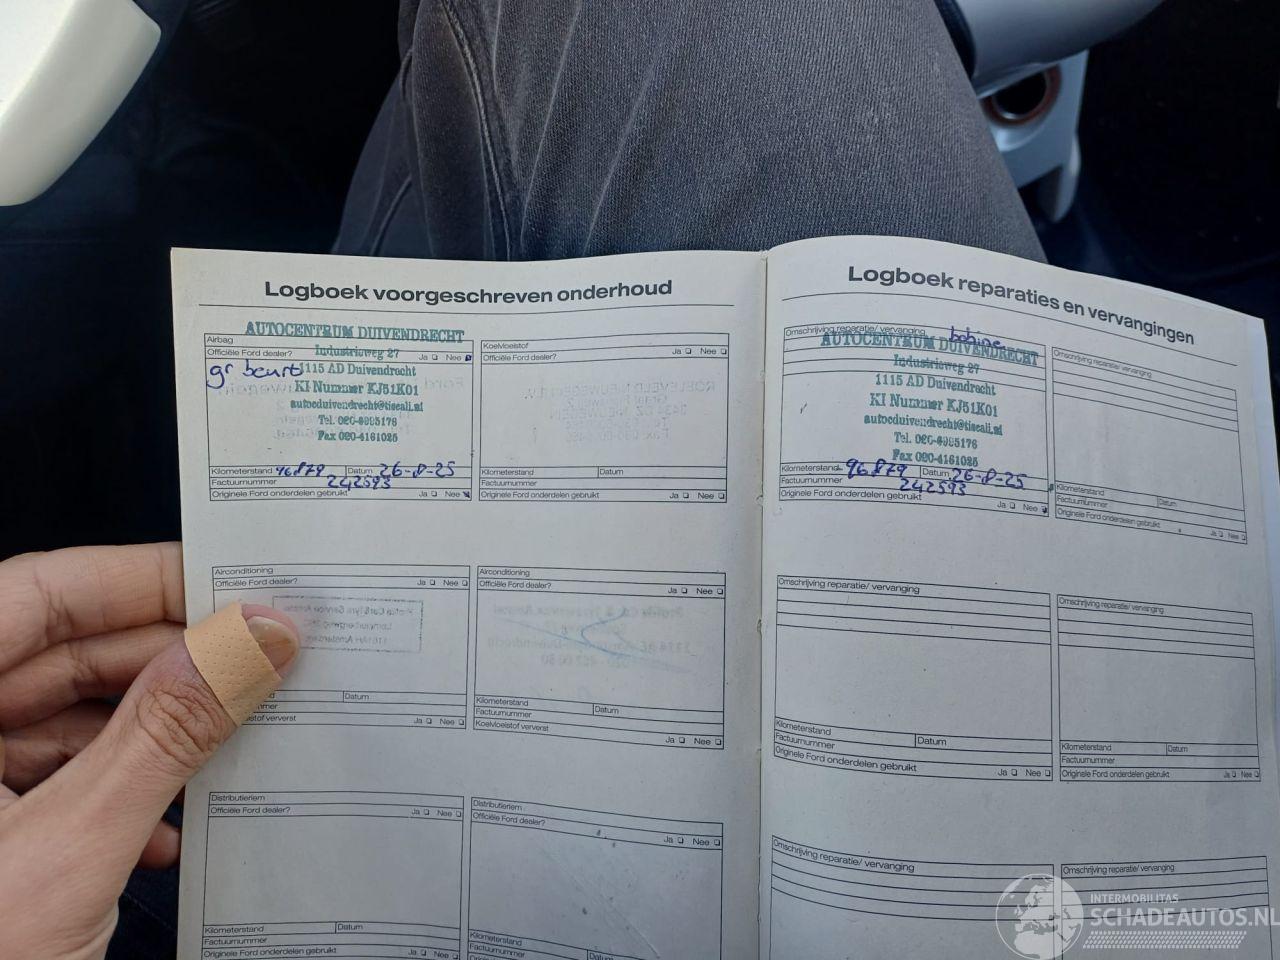 Logboek voorgeschreven onderhoud
AUTOCENTRUM DUIVENDRECHT
Airbag
Officiële Ford dealer? Ja Nee
Industrieweg 27
gr beurt
1115 AD Duivendrecht
KI Nummer KJ51K01
autocduivendrecht@tiscali.nl
Tel. 020-4995176
Fax 020-4161025
Kilometerstand 96879 Datum 26-8-25
Factuurnummer 242593
Originele Ford onderdelen gebruikt Ja Nee
Koelvloeistof
Officiële Ford dealer? Ja Nee
Kilometerstand Datum
Factuurnummer
Originele Ford onderdelen gebruikt Ja Nee
Airconditioning
Officiële Ford dealer? Ja Nee
Datum
Ja Nee
Airconditioning
Officiële Ford dealer? Ja Nee
Kilometerstand Datum
Factuurnummer
Koelvloeistof ververst Ja Nee
Distributieriem
Officiële Ford dealer? Ja Nee
Kilometerstand Datum
Factuurnummer
Originele Ford onderdelen gebruikt Ja Nee
Distributieriem
Officiële Ford dealer? Ja Nee
Kilometerstand
Factuurnummer
Logboek reparaties en vervangingen
Omschrijving reparatie/ vervanging bobine
AUTOCENTRUM DUIVENDRECHT
Industrieweg 27
1115 AD Duivendrecht
KI Nummer KJ51K01
autocduivendrecht@tiscali.nl
Tel. 020-4995176
Fax 020-4161025
Kilometerstand 96879 Datum 26-8-25
Factuurnummer 242593
Originele Ford onderdelen gebruikt Ja Nee
Omschrijving reparatie/ vervanging
Kilometerstand Datum
Factuurnummer
Originele Ford onderdelen gebruikt Ja Nee
Omschrijving reparatie/ vervanging
Kilometerstand Datum
Factuurnummer
Originele Ford onderdelen gebruikt Ja Nee
Omschrijving reparatie/ vervanging
Kilometerstand Datum
Factuurnummer
Originele Ford onderdelen gebruikt Ja Nee
Omschrijving reparatie/ vervanging
Omschrijving reparatie/ vervanging
INTERMOBILITAS
SCHADEAUTOS.NL